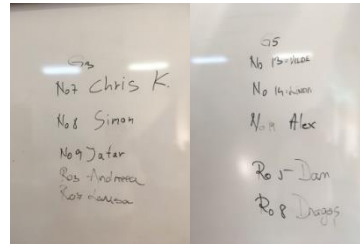 G3
No7 Chris K.
No8 Simon
No9 Jafar
Ro3 Andreea
Ro5 Larisa
G5
No 13
No 14
No 19 Alex
Ro 5 Dan
Ro 8 Dragos